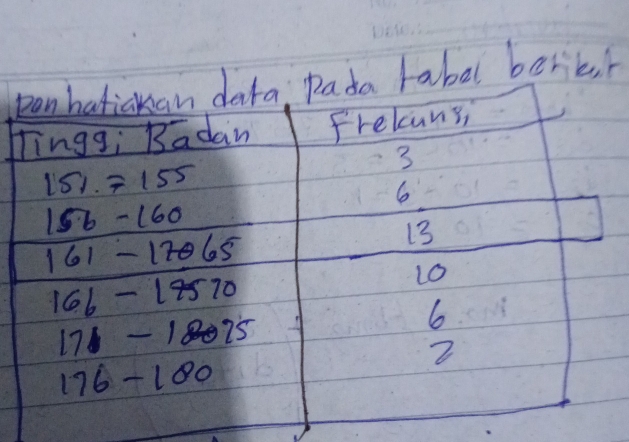 Perhatiakan data Pada tabel berikut
Tinggi Badan Frekunsi
151 - 155 3
156 - 160 6
161 - 165 13
166 - 170 10
171 - 175 6
176 - 180 2